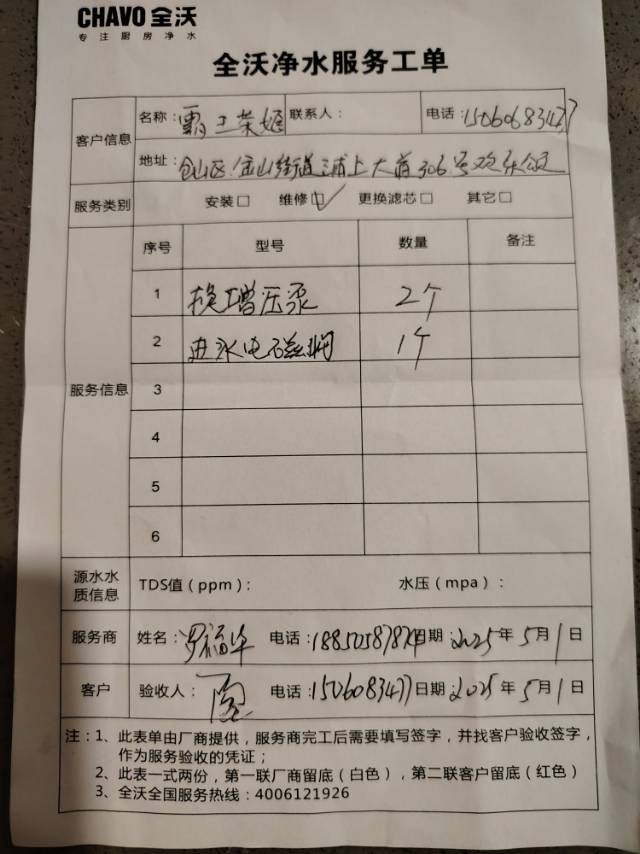 CHAVO 全沃
专注厨房净水
全沃净水服务工单
客户信息
名称：霸王茶姬 联系人： 电话：15060683477
地址：仓山区金山街道浦上大道306号
服务类别 安装□ 维修□✓ 更换滤芯□ 其它□
服务信息
序号 型号 数量 备注
1 换增压泵 2个
2 进水电磁阀 1个
3
4
5
6
源水水质信息 TDS值（ppm）： 水压（mpa）：
服务商 姓名：罗福华 电话： 日期 2025年5月1日
客户 验收人： 电话：15060683477 日期 2025年5月1日
注：1、此表单由厂商提供，服务商完工后需要填写签字，并找客户验收签字，
作为服务验收的凭证；
2、此表一式两份，第一联厂商留底（白色），第二联客户留底（红色）
3、全沃全国服务热线：4006121926